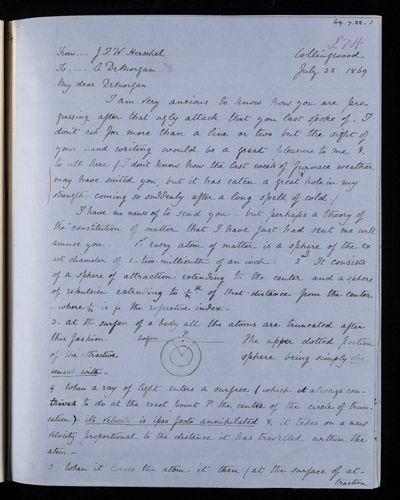 69.7.22.1
£74
From.... J.F.W. Herschel Collingwood
To..... A DeMorgan. July 22 1869
My dear DeMorgan
I am very anxious to know how you are pro-
gressing after that ugly attack that you last spoke of. I
don't ask for more than a line or two but the sight of
your hand writing would be a great pleasure to me &
to all here. I don't know how the last week of furnace weather
may have suited you, but it has eaten a great hole in my
strength coming so suddenly after a long spell of cold.
I have no news of to send you - but perhaps a theory of
the constitution of matter that I have just had sent me will
amuse you. 1st every atom of matter is a sphere of the ex
act diameter of 1-two-millionth of an inch. 2nd It consists
of a sphere of attraction extending to the center and a sphere
of repulsion extending to 1/n th of that distance from the center
- where 1/n is μ the refractive index -
3 - at the surface of a body all the atoms are truncated after
this fashion Surface P The upper dotted portion
of the attractive sphere being simply dis-
pensed with -
4 When a ray of light enters a surface (which it always con-
trives to do at the exact point P the center of the circle of trun-
cation) its velocity is ipso facto annihilated & it takes on a new
velocity proportional to the distance it has travelled within the
atom -
5 When it leaves the atom it then (at the surface of at-
traction